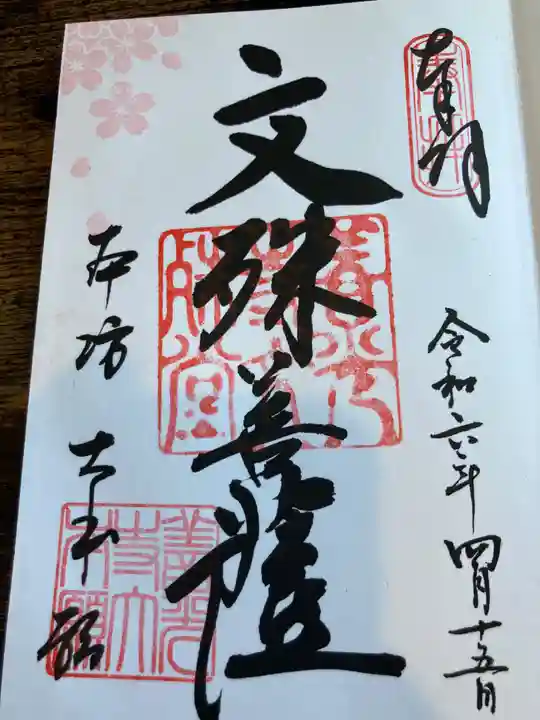 奉拝
令和六年四月十五日
文殊菩薩
本坊 大本願